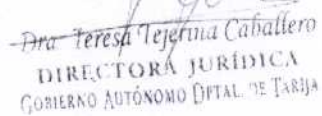 Dra. Teresa Tejerina Caballero
DIRECTORA JURÍDICA
GOBIERNO AUTÓNOMO DPTAL. DE TARIJA